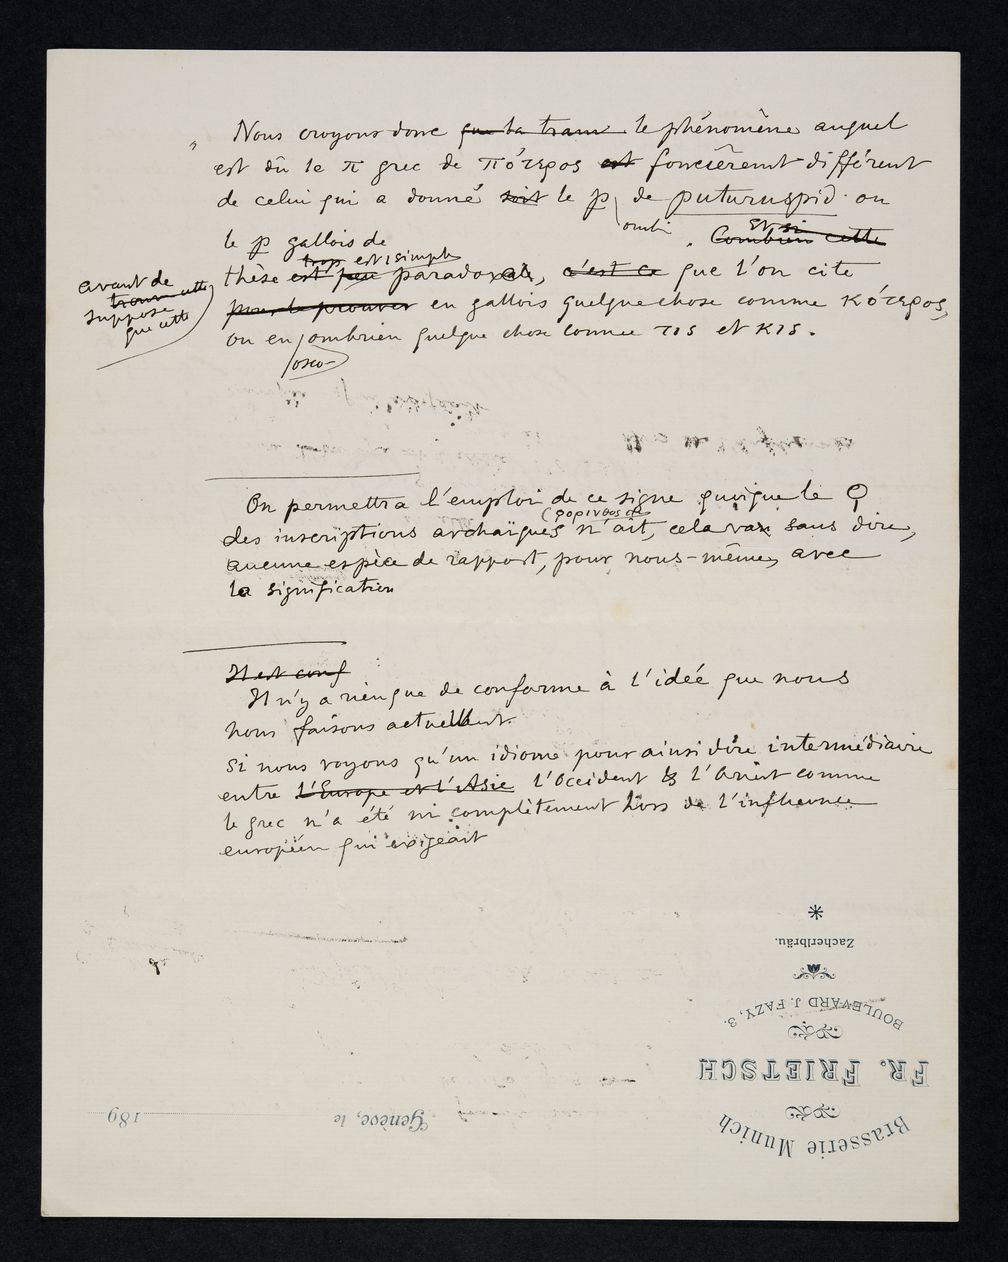 Nous croyons donc que la tran le phénomène auquel
est dû le π grec de πότερος est foncièremt différent
de celui qui a donné soit le p de puturuspid ou
ombr
le p gallois de
Et si
Combien cette
avant de
suppose
que cette
trop est simplt
thèse est peu paradoxale, c'est ce que l'on cite
pour le prouver en gallois quelque chose comme κότερος,
ou en ombrien quelque chose comme τις et κις.
osco-
On permettra l'emploi de ce signe quoique le Ϙ
(ϙορινθος etc
des inscriptions archaïques n'ait, cela va sans dire,
aucune espèce de rapport, pour nous-même, avec
la signification
Il est conf
Il n'y a rien que de conforme à l'idée que nous
nous faisons actuellemt.
si nous voyons qu'un idiome pour ainsi dire intermédiaire
entre l'Europe et l'Asie l'Occident & l'Orient comme
le grec n'a été ni complètement hors de l'influence
européen qui exigeait
Brasserie Munich
FR. FRIETSCH
BOULEVARD J. FAZY, 3.
Zacherlbräu.
Genève, le 189